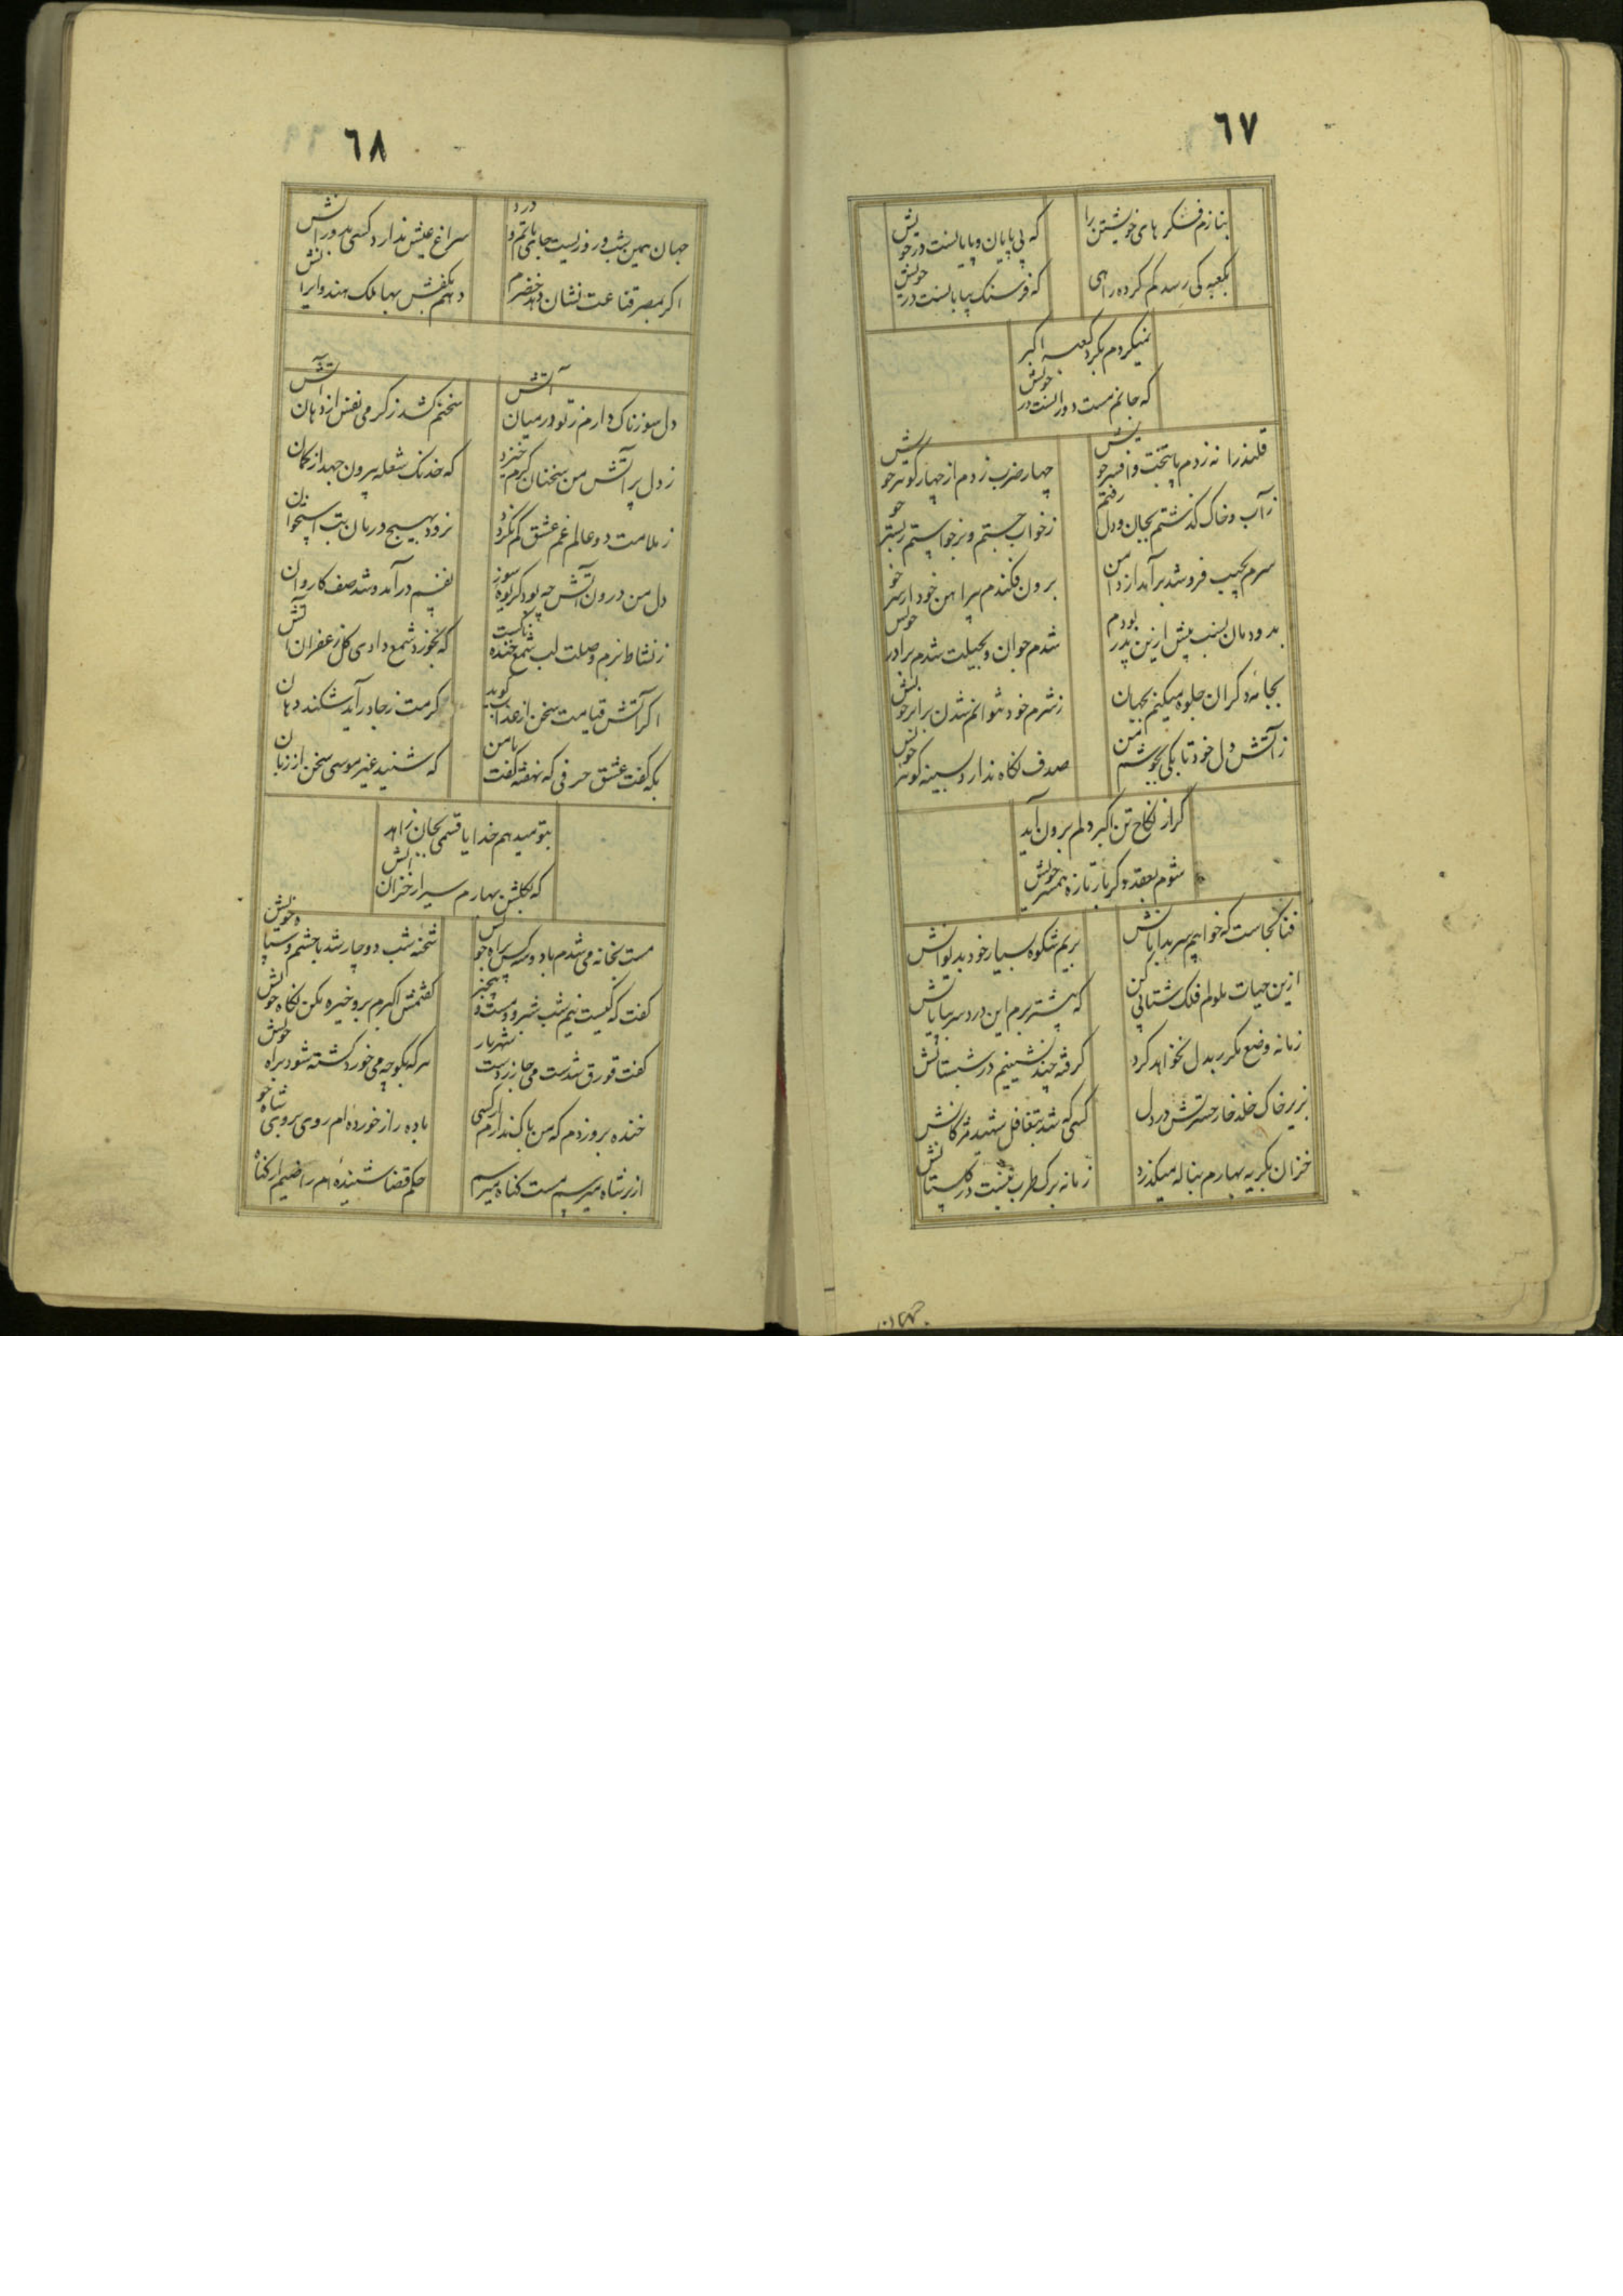 ٦٧
بنازم فکر های خویشتن را
که بی پایان و پایانست در خویش
بکعبه کی رسد گم کرده راهی
که فرسنک بیابانست در خویش
نمیکردم بکرد کعبه اکبر
که جانم مست دورانست در خویش
قلندرانه زدم پا بتخت و افسر خویش
چهار ضرب زدم از چهار گوهر خویش
ز آب و خاک گذشتم بجان و دل رفتم
ز خواب جستم و برخواستم ز بستر خو
سرم بجیب فرو شد برآمد از دامن
برون فکندم پیراهن خود از سر خو
بدودمان نسب پیش ازین پدر بودم
شدم جوان و بحیلت شدم برادر خویش
بجانه دکران جلوه میکنم بجهان
ز شرم خود نتوانم شدن برابر خویش
ز آتش دل خود تا بکی بجوشم من
صدف نکاه ندارد بسینه کوهر خویش
گر از نکاح تن اکبر دلم برون آید
شوم بعقد دکر بار تازه همسر خویش
فنا کجاست که خواهیم سر بدامانش
بریم شکوه بسیار خود بدیوانش
ازین حیات ملولم فلک شتابی کن
که پیشتر برم این درد سر بپایانش
زمانه وضع مکرر بدل نخواهد کرد
گرفته چند نشینیم در شبستانش
بزیر خاک خلد خار حسرتش در دل
کسی که شد بتغافل شهید مژکانش
خزان بکریه بهارم بناله میکذرد
زمانه برک طرب نیست در کلستانش
جهان
٦٨
جهان همین شب و روزیست جای ماتم و درد
سراغ عیش ندارد کسی بدورانش
اکر بمصر قناعت نشان دهد خضرم
دهم بکفش بها ملک هند و ایرانش
دل سوزناک دارم ز تو در میان آتش
سخنم کشد ز کرمی نفس از دهان آتش
ز دل پر آتش من سخنان کرم خیزد
که خدنک شعله بیرون جهد از کمان
ز ملامت دو عالم غم عشق کم نکردد
نرود بهیچ درمان تب استخوان
دل من درون آتش چه بود کراوه سوز
نفسم درآمد و شد صف کاروان
ز نشاط بزم وصلت لب شمع خنده ناکست
که بخورد شمع دادی کل زعفران آتش
اکر آتش قیامت سخن از عذاب کوید
کرمت ز جا درآید شکند دهان
بکه کفت عشق حرفی که نهفته کفت با من
که شنید غیر موسی سخن از زبان
بتو میدهم خدایا قسمی بجان زاهد
که بکلشن بهارم سر از خزان آتش
مست بخانه می شدم با دو سه کس براه خویش
شحنه شب دوچار شد با حشم و سپاه خویش
کفت که کیست نیم شب شبرو و مست و بیخبر
کفتمش اکبرم برو خیره مکن نکاه خویش
کفت قورق شدست می جانب زردست شهریار
هر که بکوچه می خورد کشته شود براه خویش
خنده بروزدم که من باک ندارم از کسی
باده راز خورده ام روی بروی شاه خو
از بر شاه میرسم مست کناه میرسم
حکم قضا شنیده ام راضیم از کناه